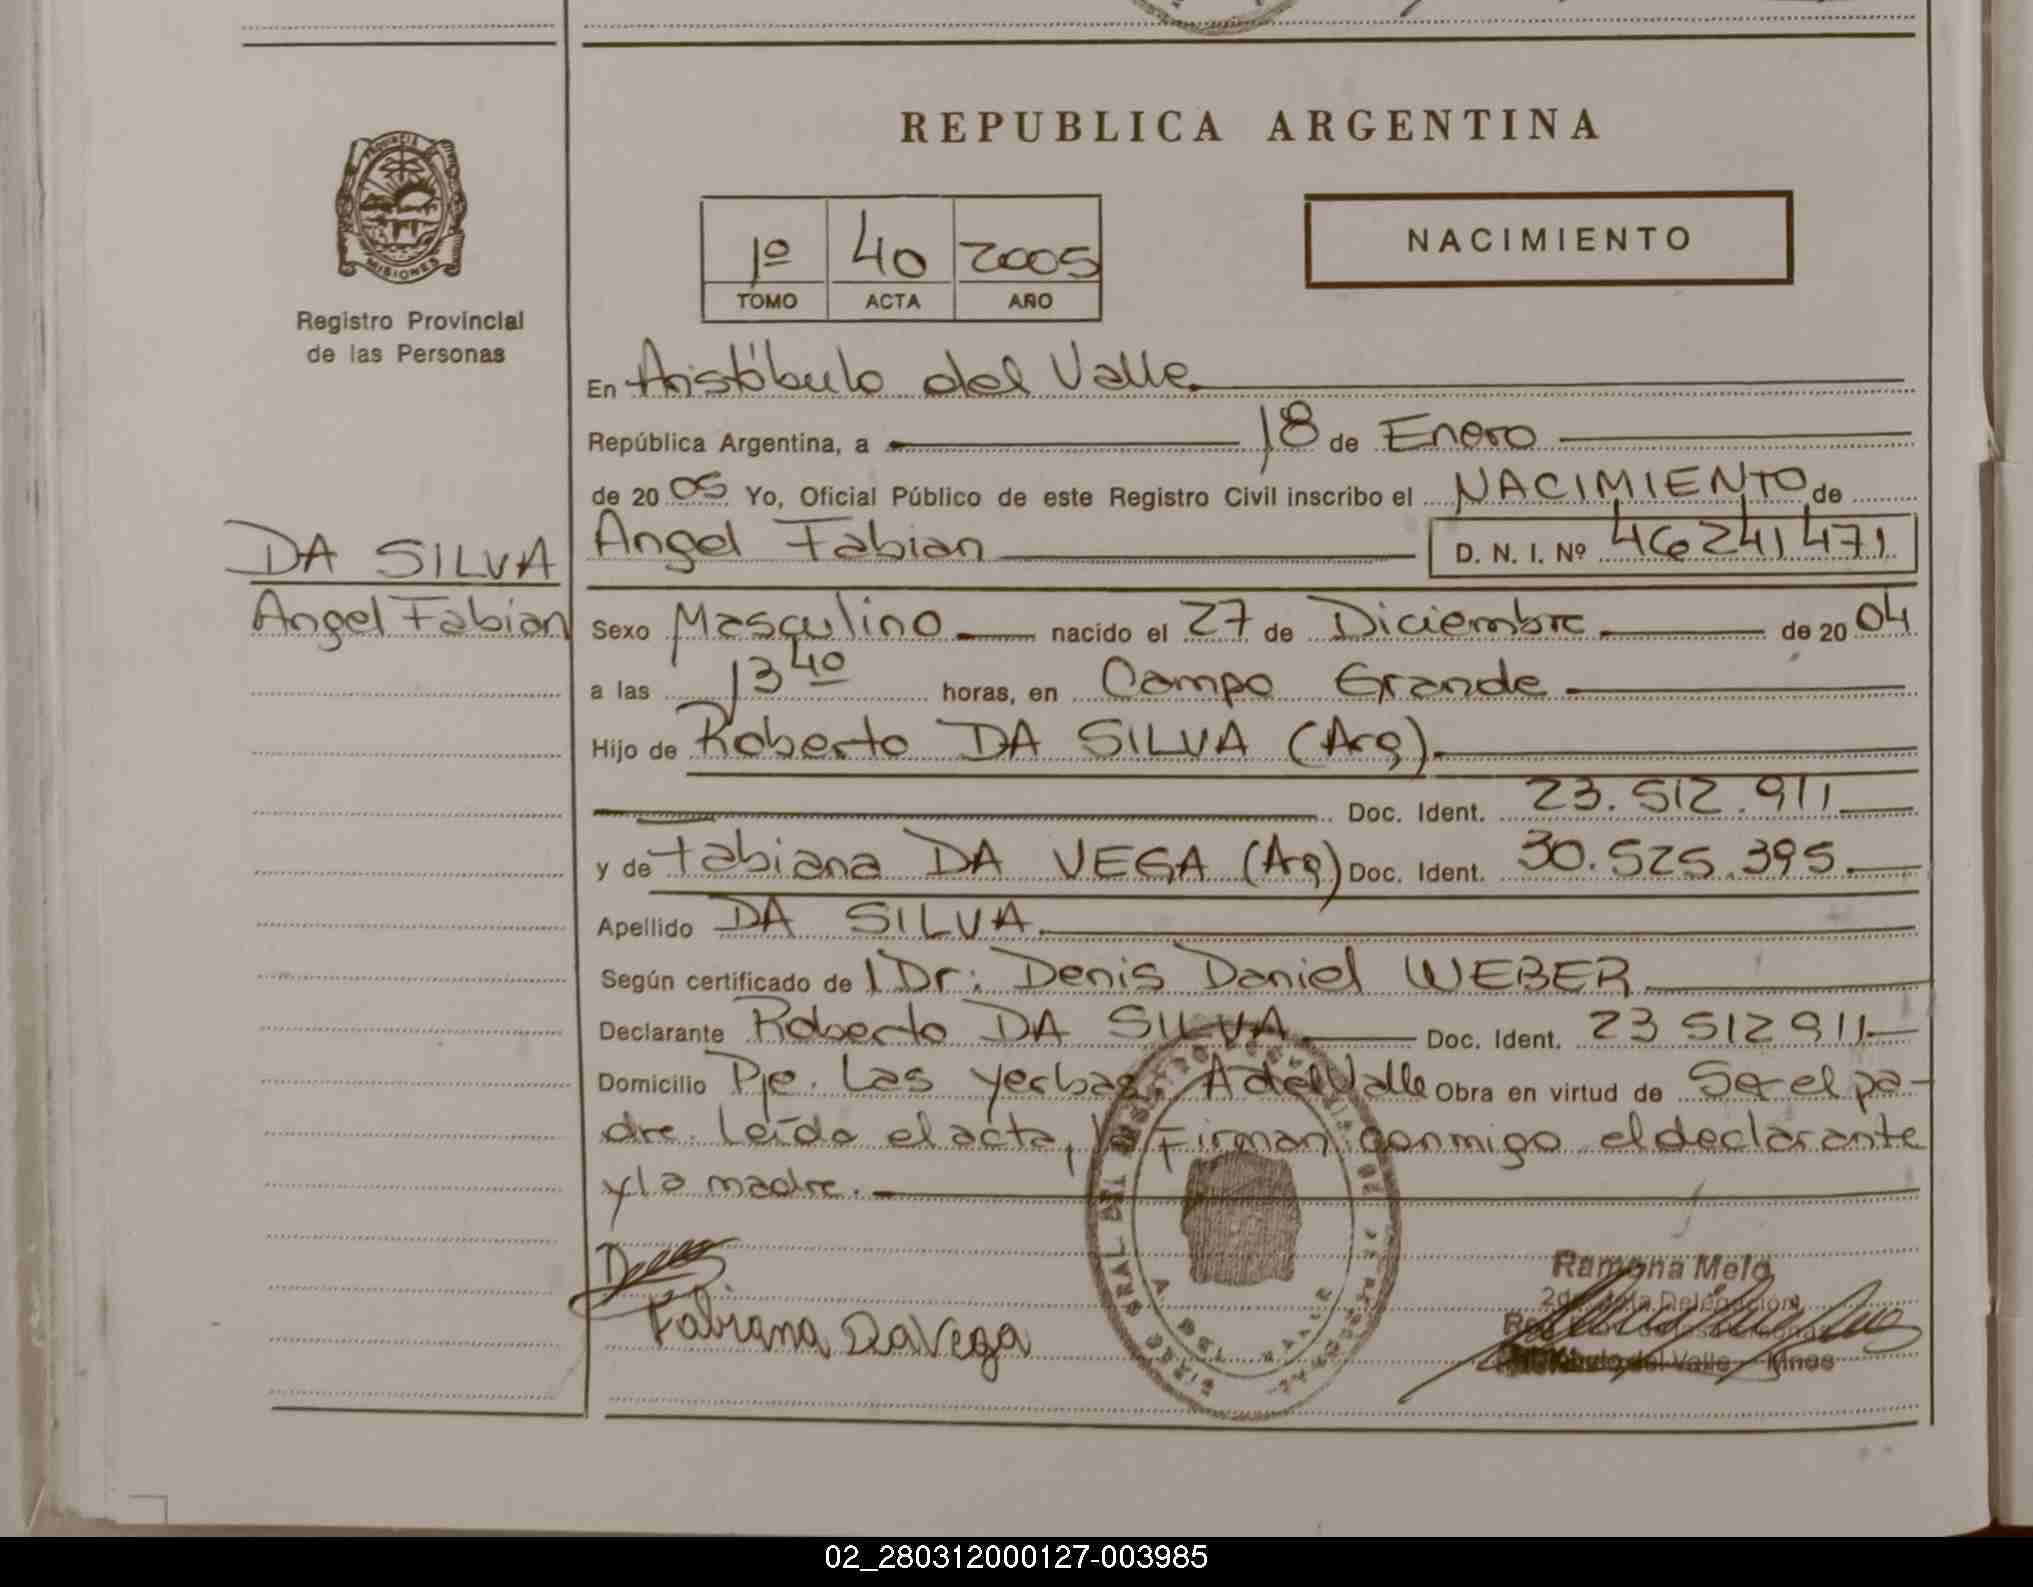 REPUBLICA ARGENTINA
PROVINCIA DE
MISIONES
Registro Provincial
de las Personas
1º 40 2005
TOMO ACTA AÑO
NACIMIENTO
En Aristóbulo del Valle
República Argentina, a 18 de Enero
de 2005 Yo, Oficial Público de este Registro Civil inscribo el NACIMIENTO de
DA SILVA
Angel Fabian
Angel Fabian D. N. I. Nº 46241471
Sexo Masculino nacido el 27 de Diciembre de 2004
a las 13 40 horas, en Campo Grande
Hijo de Roberto DA SILVA (Arg).
Doc. Ident. 23.512.911
y de Fabiana DA VEGA (Arg) Doc. Ident. 30.525.395.
Apellido DA SILVA.
Según certificado de Dr: Denis Daniel WEBER
Declarante Roberto DA SILVA Doc. Ident. 23 512 911
Domicilio Pje. Las Yerbas A del Valle Obra en virtud de Ser el pa-
dre. Leída el acta, Firman conmigo el declarante
y la madre.
Fabiana DaVega
Ramona Melo
del Valle - Mnes
02_280312000127-003985